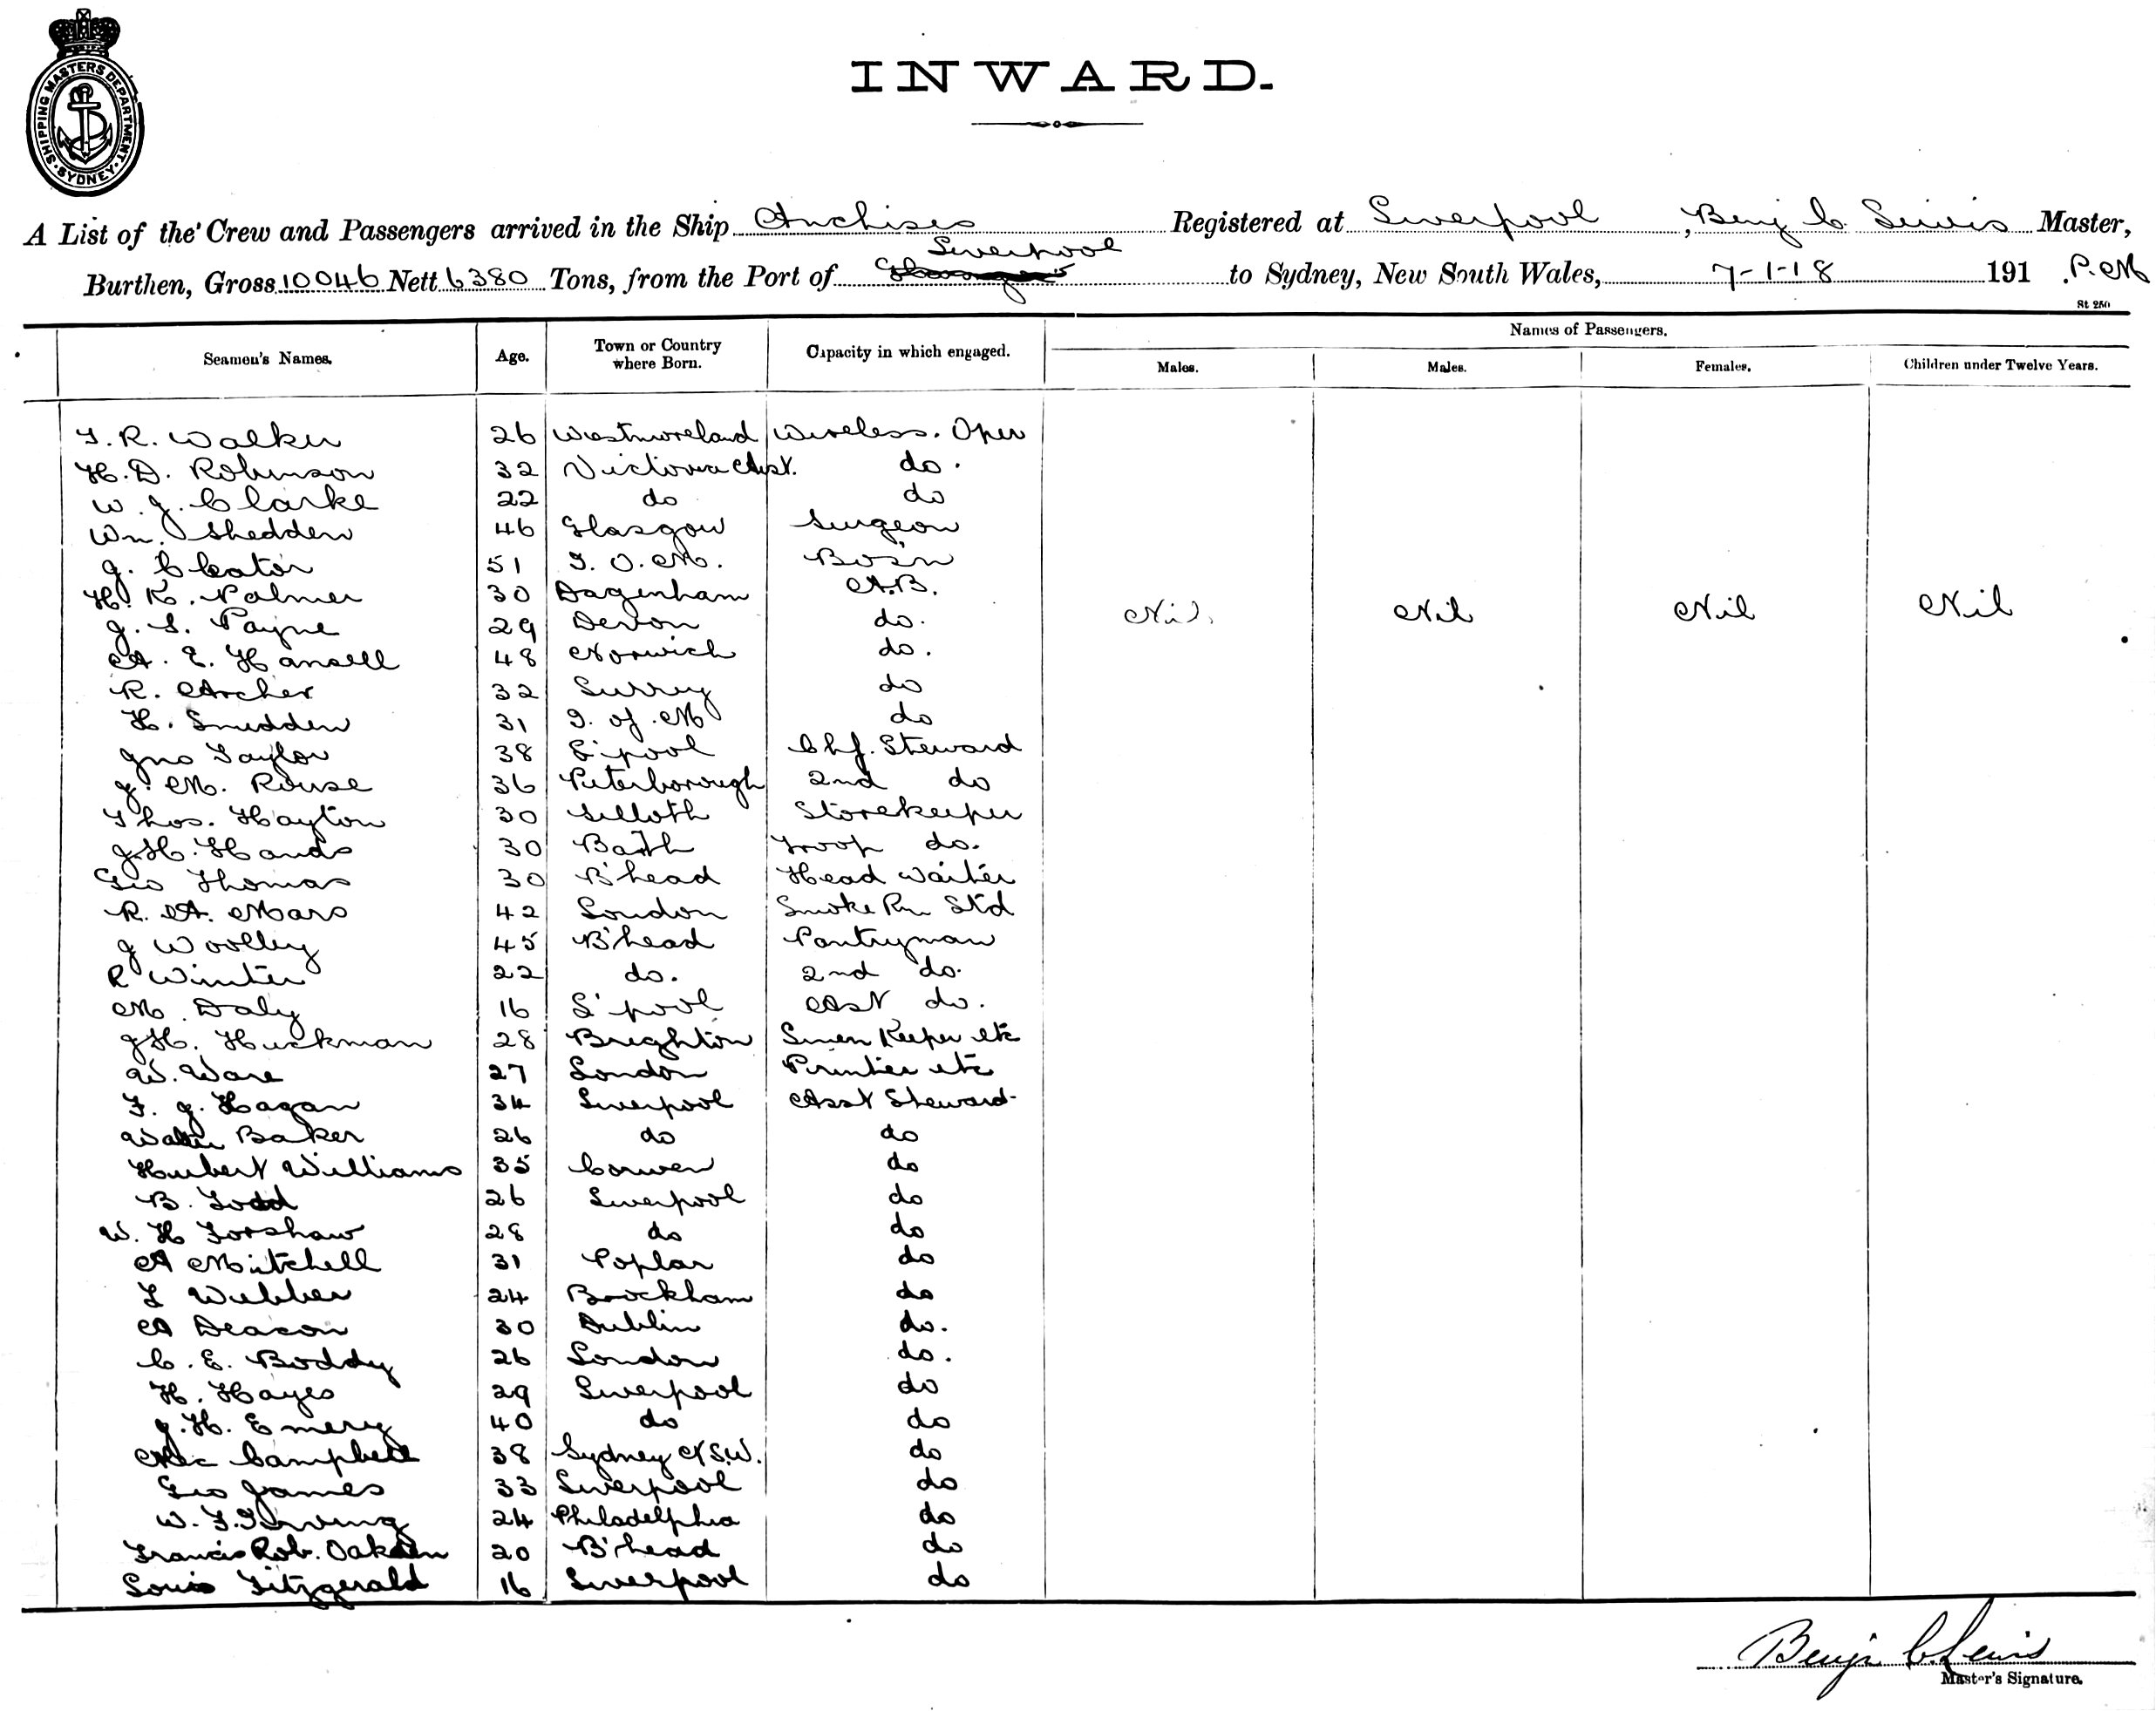 SHIPPING MASTERS DEPARTMENT · SYDNEY ·
INWARD.
A List of the Crew and Passengers arrived in the Ship Anchises Registered at Liverpool, Benj C. Lewis Master,
Liverpool
Burthen, Gross 10046 Nett 6380 Tons, from the Port of Glasgow to Sydney, New South Wales, 7-1-18 191 P.M
St 250
Seamen's Names. Age. Town or Country where Born. Capacity in which engaged. Names of Passengers.
Males. Males. Females. Children under Twelve Years.
T. R. Walker 26 Westmoreland Wireless. Oper
H. D. Robinson 32 Victoria Aust. do.
W. J. Clarke 22 do do
Wm. Shedden 46 Glasgow Surgeon
J. Cleator 51 I. O. M. Bos'n
H. K. Palmer 30 Dagenham A.B.
J. S. Payne 29 Devon do. Nil. Nil Nil Nil
A. E. Hansell 48 Norwich do.
R. Archer 32 Surrey do
H. Snudden 31 I. of. M do
Jno Taylor 38 L'pool Chf. Steward
J. M. Rouse 36 Peterborough 2nd do
Thos. Hayton 30 Silloth Storekeeper
J. H. Hands 30 Bath Troop do.
Geo Thomas 30 B'head Head Waiter
R. A. Mars 42 London Smoke Rm Std
J Woolley 45 B'head Pantryman
R Winter 22 do. 2nd do.
M. Daly 16 L'pool Asst do.
J H. Huckman 28 Brighton Linen Keeper etc
W. Ware 27 London Printer etc
F. J. Hagan 34 Liverpool Asst Steward
Walter Baker 26 do do
Hubert Williams 35 Corwen do
B. Todd 26 Liverpool do
W. H Forshaw 28 do do
A Mitchell 31 Poplar do
L Webber 24 Brockham do
A Deacon 30 Dublin do.
C. E. Boddy 26 London do.
H. Hayes 29 Liverpool do
J. H. Emery 40 do do
Campbell 38 Sydney N.S.W. do
Geo James 33 Liverpool do
W. F. Irving 24 Philadelphia do
Francis Rob. Oakden 20 B'head do
Louis Fitzgerald 16 Liverpool do
Benj. C. Lewis
Master's Signature.